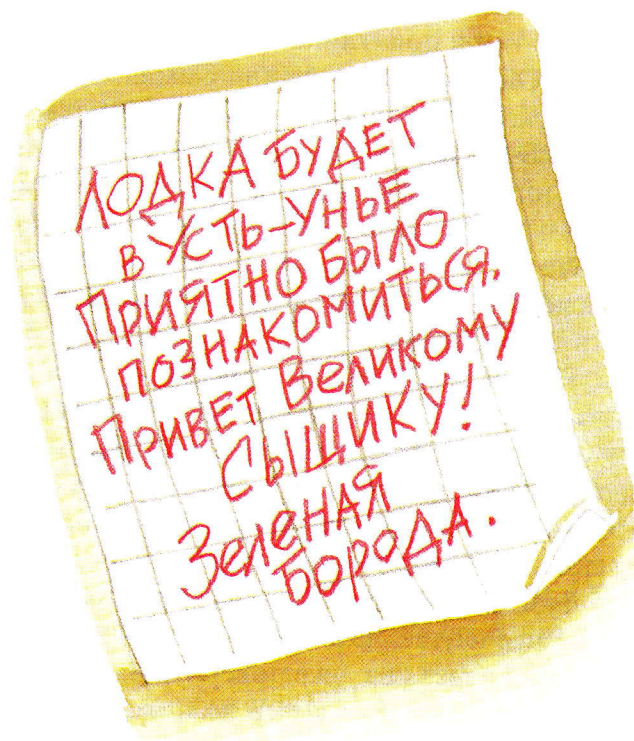 ЛОДКА БУДЕТ
В УСТЬ-УНЬЕ
ПРИЯТНО БЫЛО
ПОЗНАКОМИТЬСЯ.
ПРИВЕТ ВЕЛИКОМУ
СЫЩИКУ!
ЗЕЛЕНАЯ
БОРОДА.